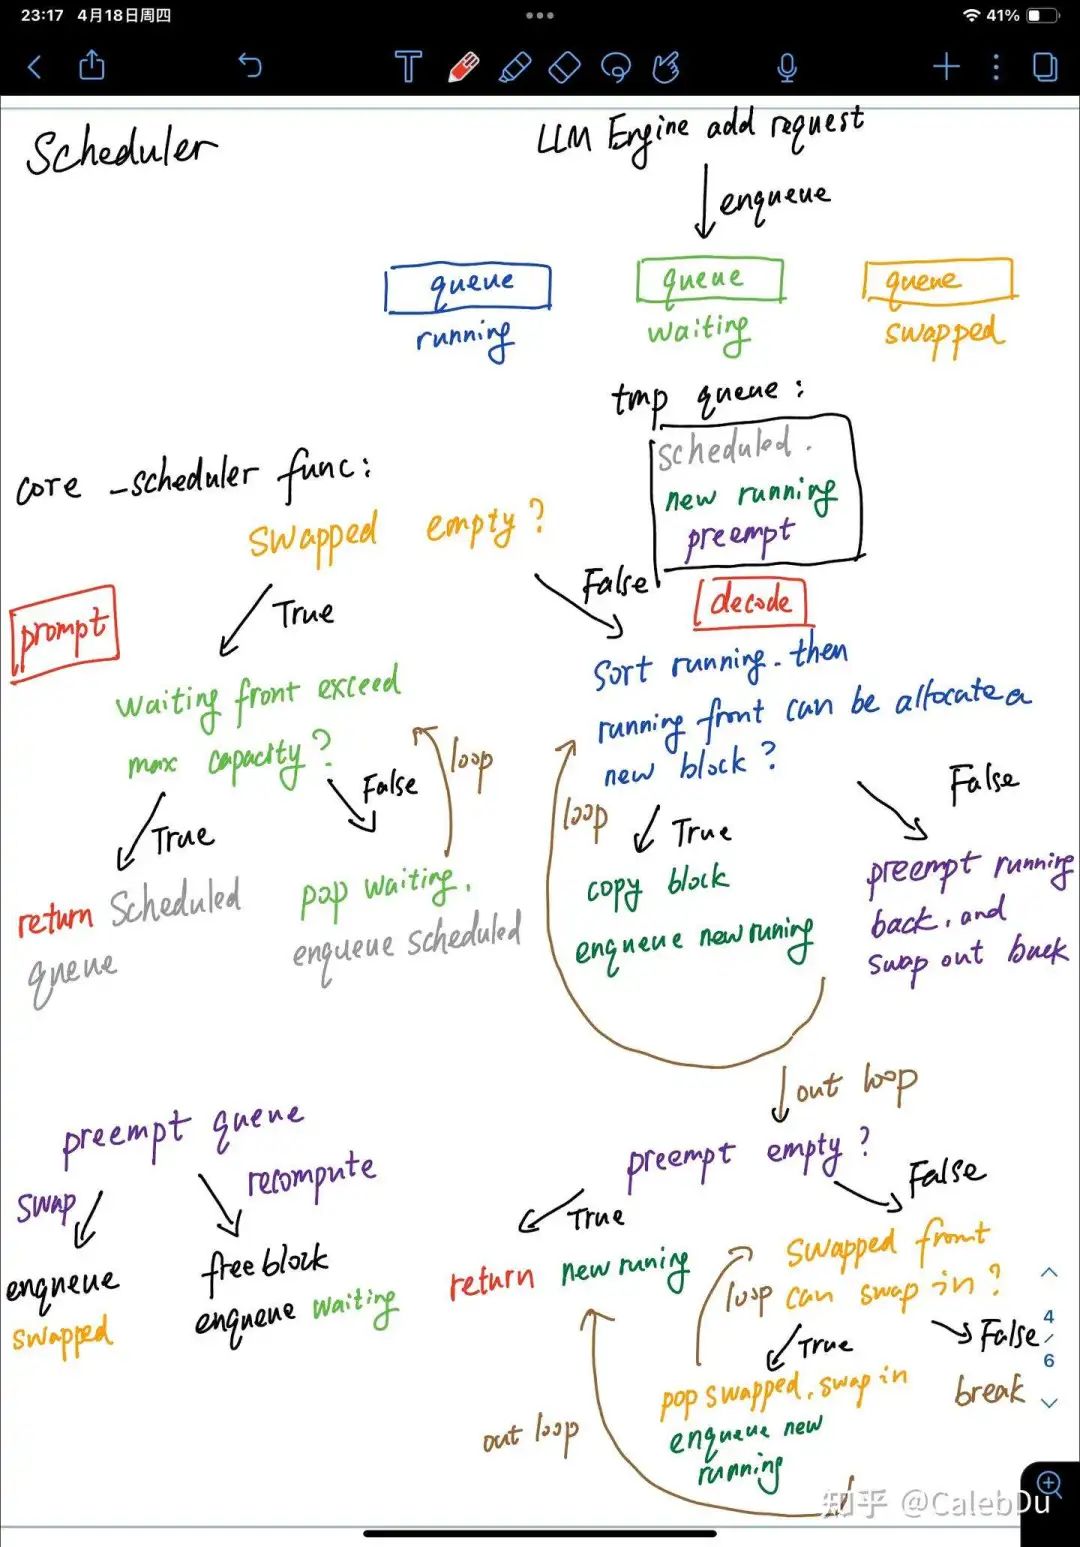 23:17 4月18日周四
41%
T
Scheduler
LLM Engine add request
enqueue
queue
running
queue
waiting
queue
swapped
tmp queue:
scheduled.
new running
preempt
core _scheduler func:
swapped empty?
True
False
prompt
decode
waiting front exceed
max capacity?
loop
True
False
return Scheduled
queue
pop waiting.
enqueue scheduled
Sort running. then
running front can be allocate a
new block?
loop
True
False
copy block
enqueue new runing
preempt running
back. and
swap out back
out loop
preempt empty?
True
False
return new runing
swapped front
can swap in?
loop
True
False
pop swapped. swap in
enqueue new
running
break
out loop
preempt queue
swap
recompute
enqueue
swapped
free block
enqueue waiting
4
/
6
知乎 @CalebDu